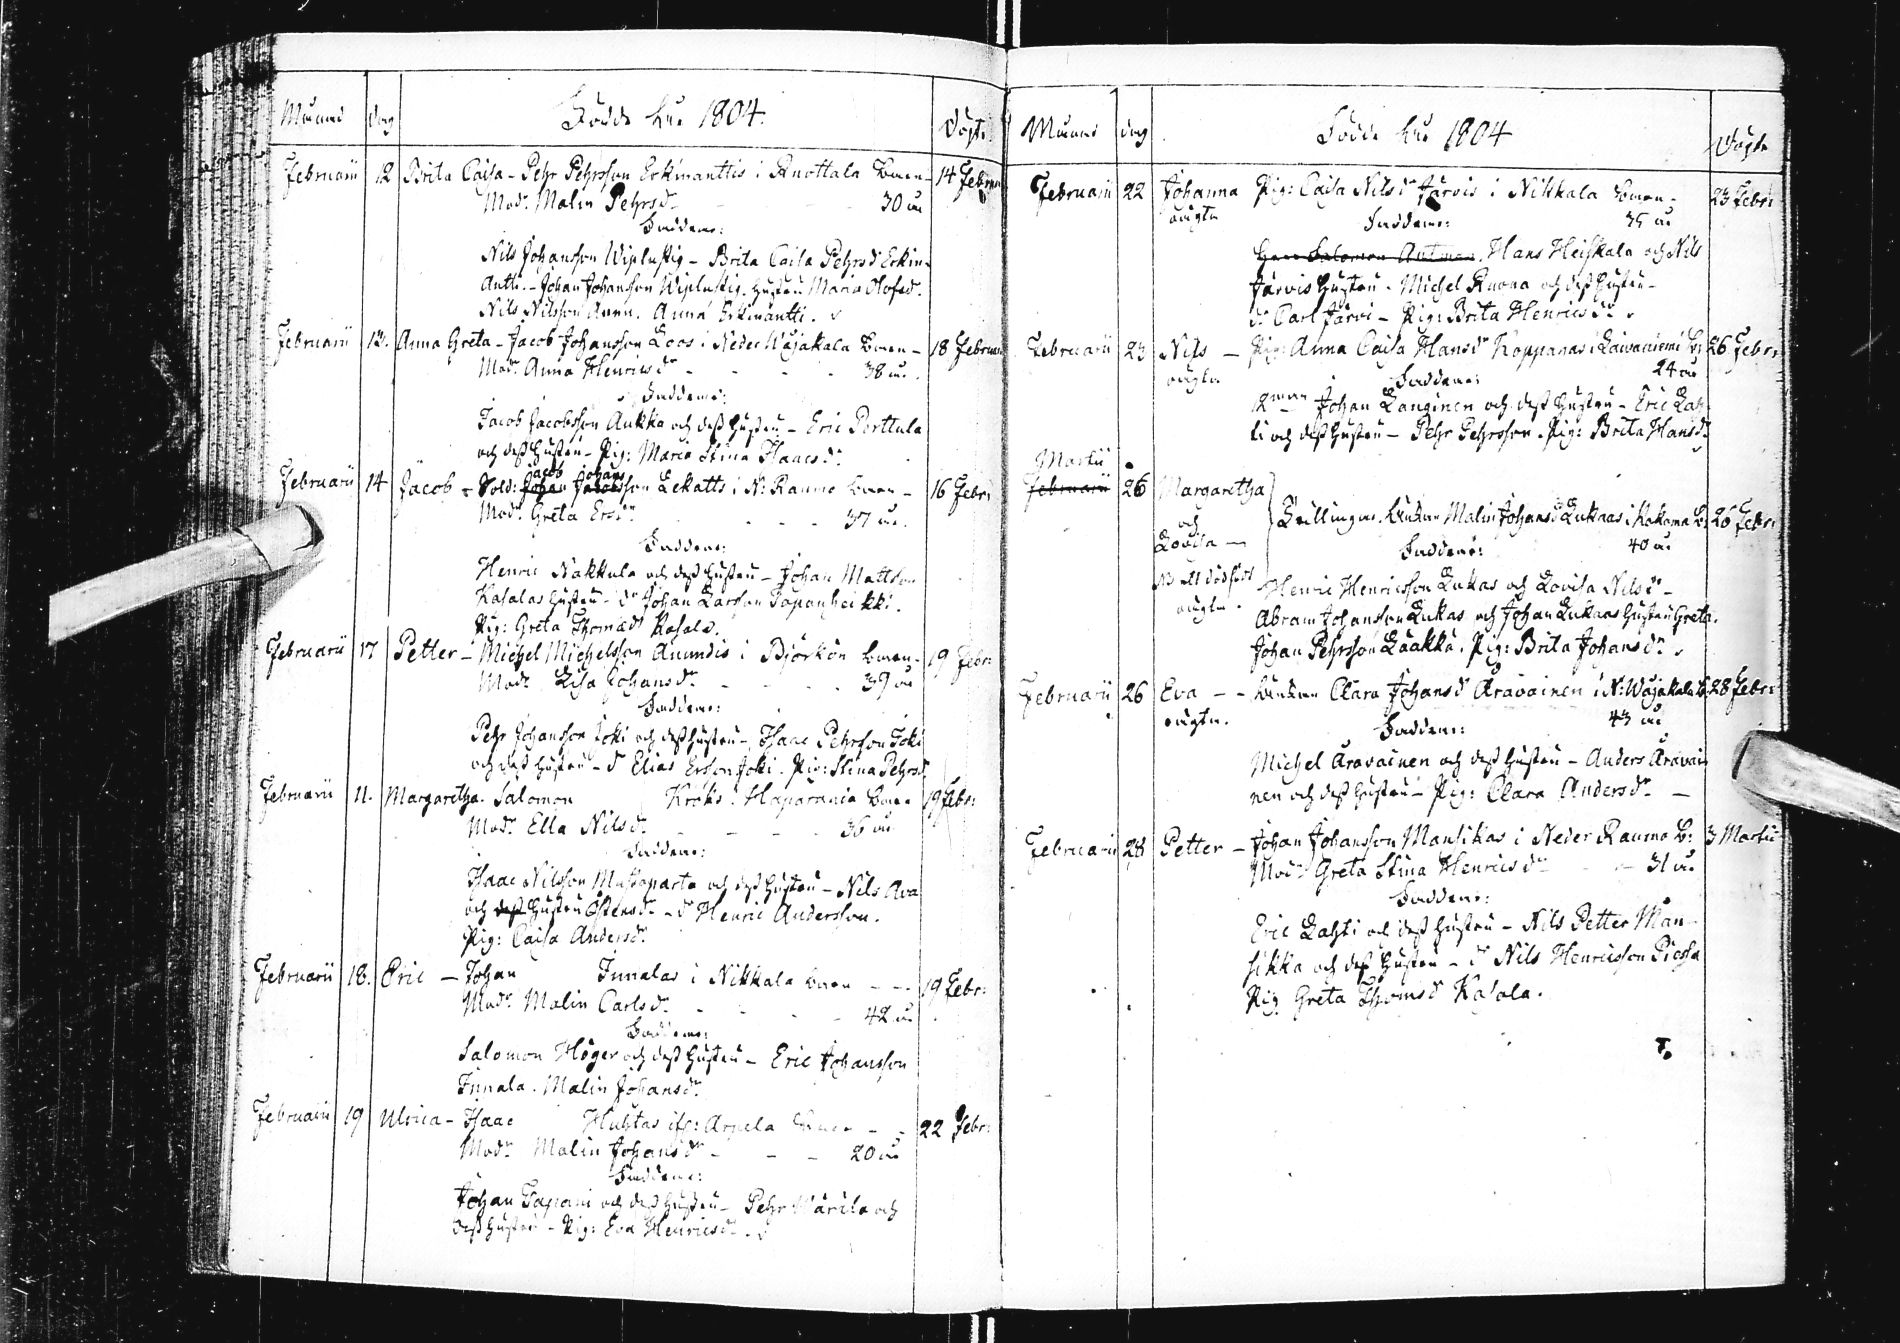 Månad dag Födde åhr 1804. Döpte
Februarii 12 Brita Caisa - Pehr Pehrsson Erkinanttis i Knottala Barn - 14 Februar
Modr Malin Pehrsdr 30 år
Faddern:
Nils Johansson - Brita Caisa Pehrsdr Erkin-
Antti - Johan Johansson hustru Maria Olofsdr.
Nils Nilsson Anna Erkinantti.
Februarii 13. Anna Greta - Jacob Johansson Loos i Neder Wojakala Barn - 18 Februar
Modr Anna Henricsdr - - - 38 år.
Faddern:
Jacob Jacobsson Aukka och dess hustru - Eric Perttula
och dess hustru - Pig: Maria Stina Isaacsdr
Februarii 14 Jacob - Sold: Jacob Johansson Lekatts i N: Raumo Barn - 16 Febr:
Modr Greta Ersdr - - 37 år.
Faddern:
Henric Nakkula och dess hustru - Johan Mattsson
Kasalas hustru - dr Johan Larsson Tapanheikki.
Pig: Greta Thomædr Kasala.
Februarii 17 Petter - Michel Michelsson Anundis i Björkön Barn - 19 Febr:
Modr Lisa Johansdr - - - 39 år
Faddern:
Pehr Johansson Joki och dess hustru - Isaac Pehrsson Joki
och dess hustru - d Elias Ersson Joki. Pig: Stina Pehrsd
Februarii 11. Margaretha. Salomon Kröks i Haparanda Barn 19 Febr:
Modr Ella Nilsdr - - - 36 år
Faddern:
Isaac Nilsson Mustaparta och dess hustru - Nils Ava
och dess hustru Östensdr - d Henric Andersson.
Pig: Caisa Andersdr
Februarii 18. Eric - Johan Innalas i Nikkala Barn - - 19 Febr:
Modr Malin Carlsdr - - - 42 år
Faddern:
Salomon Höger och dess hustru - Eric Johansson
Innala. Malin Johansdr
Februarii 19 Ulrica - Isaac Huhtas Arpela Barn - - 22 Febr:
Modr Malin Johansdr - - - 20 år
Faddern:
Johan Tapani och dess hustru - Pehr Wärila och
dess hustru - Pig: Eva Henricsdr.
Månad dag Födde åhr 1804 Döpte
Februarii 22 Johanna Pig: Caisa Nilsdr Järvis i Nikkala Barn - 23 Febr:
oägta Faddern: 35 år
Salomon Hans Heiskala och Nils
Järvis hustru. Michel Ruona och dess hustru -
dr Carl Järvi - Pig: Brita Henricsdr.
Februarii 23 Nils - Pig: Anna Caisa Hansdr Koppanas i Laivaniemi B: 26 Febr:
oägta Faddern: 24 år
12man Johan Langinen och dess hustru - Eric Lah-
ti och dess hustru - Pehr Pehrsson. Pig: Brita Hansdr
Martii
Februarii 26 Margaretha
och Tvillingar. Malin Johansdr Lukaas i Kakama B: 26 Febr:
Lovisa - Faddern: 40 år
dödfödt Henric Henricsson Lukas och Lovisa Nilsdr -
oägta. Abram Johansson Lukas och Johan Lukaas hustru Greta.
Johan Pehrsson Laakka. Pig: Brita Johansdr
Februarii 26 Eva - - Clara Johansdr Aravainen i N: Wojakala B: 28 Febr:
oägta. Faddern: 43 år
Michel Aravainen och dess hustru - Anders Aravai-
nen och dess hustru - Pig: Clara Andersdr -
Februarii 28 Petter - Johan Johansson Mansikas i Neder Raumo B: 3 Martii
Modr Greta Stina Henricsdr - 31 år
Faddern:
Eric Lahti och dess hustru - Nils Petter Man-
sikka och dess hustru - d Nils Henricsson
Pig. Greta Thomsd Kasala.